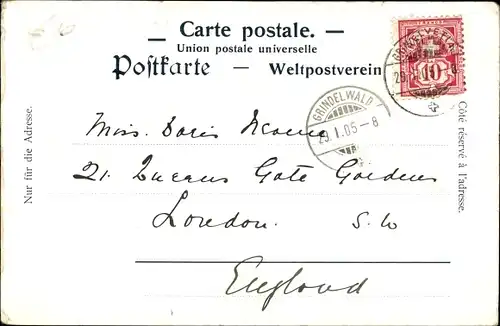 Carte postale.
Union postale universelle
Postkarte — Weltpostverein
Nur für die Adresse.
Côté réservé à l'adresse.
HELVETIA
10
GRINDELWALD
29. I. 05 – 8
Miss. Doris
21. Queens Gate Gardens
London. S. W
England